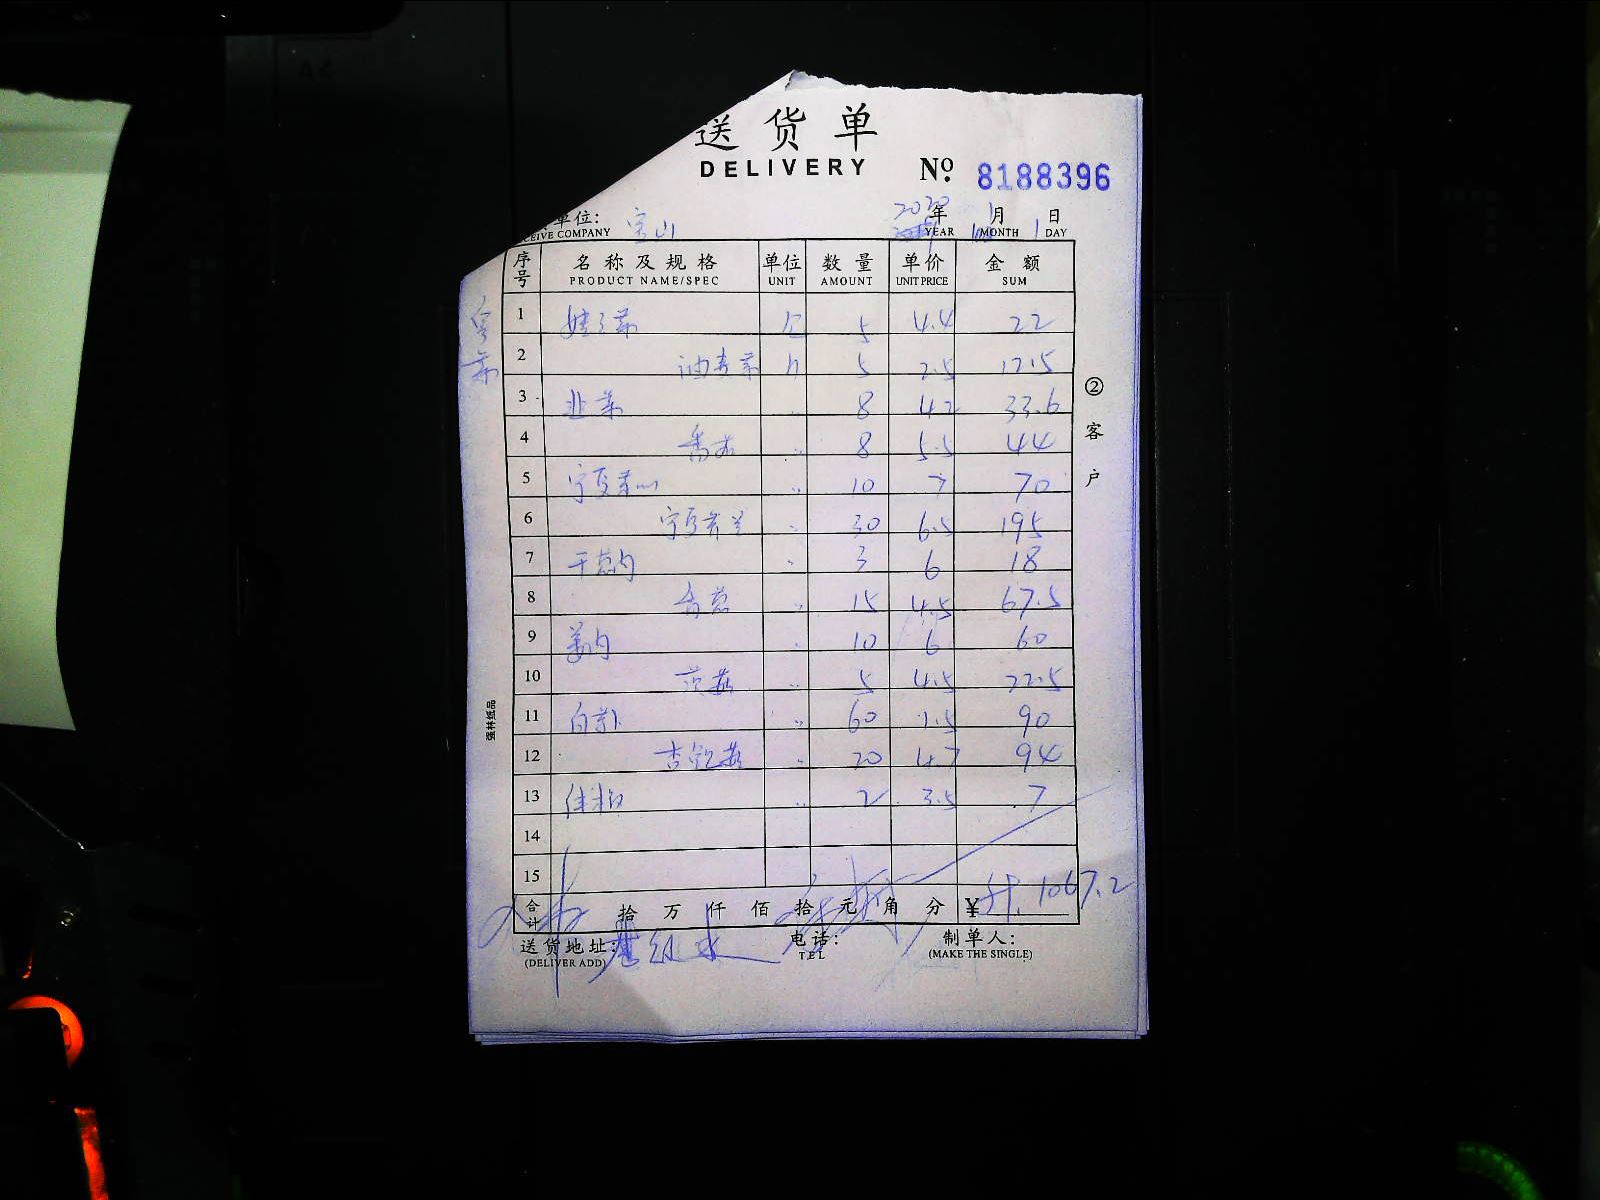 送货单
DELIVERY № 8188396
单位: 宝山 2020年 1月 1日
CEIVE COMPANY YEAR MONTH DAY
序号 名称及规格 单位 数量 单价 金额
PRODUCT NAME/SPEC UNIT AMOUNT UNIT PRICE SUM
1 娃子菜 5 4.4 22
2 油麦菜 5 2.5 12.5
3 韭菜 8 4.2 33.6
4 8 5.5 44
5 宁夏菜心 10 7 70
6 宁夏芥兰 30 6.5 195
7 干葱肉 3 6 18
8 香葱 15 4.5 67.5
9 姜肉 10 6 60
10 茨菇 5 4.5 22.5
11 白萝卜 60 1.5 90
12 杏鲍菇 20 4.7 94
13 2 3.5 7
14
15
合计 拾万仟佰拾元角分 ¥ 1067.2
送货地址: 电话: 制单人:
(DELIVER ADD) TEL (MAKE THE SINGLE)
②客户
强林纸品